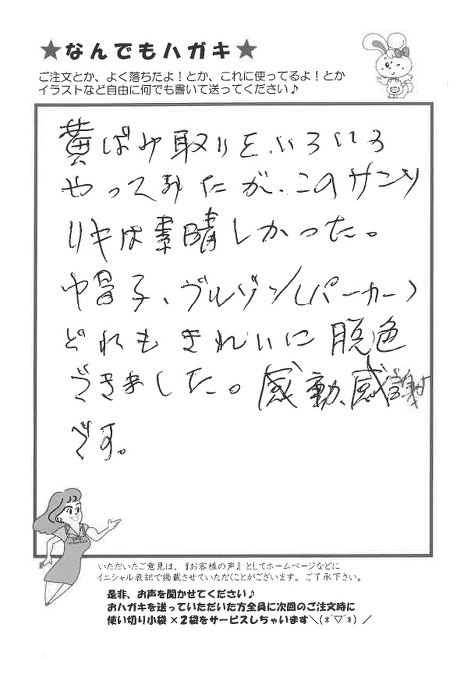 ★なんでもハガキ★
ご注文とか、よく落ちたよ！とか、これに使ってるよ！とか
イラストなど自由に何でも書いて送ってください♪
黄ばみ取りをいろいろ
やってみたが、このサンソ
リキは素晴しかった。
帽子、ブルゾン（パーカー）
どれもきれいに脱色
できました。感動、感謝
です。
いただいたご意見は、『お客様の声』としてホームページなどに
イニシャル表記で掲載させていただくことがございます。ご了承下さい。
是非、お声を聞かせてください♪
おハガキを送っていただいた方全員に次回のご注文時に
使い切り小袋×2袋をサービスしちゃいます＼(*ˊ▽ˋ*)／